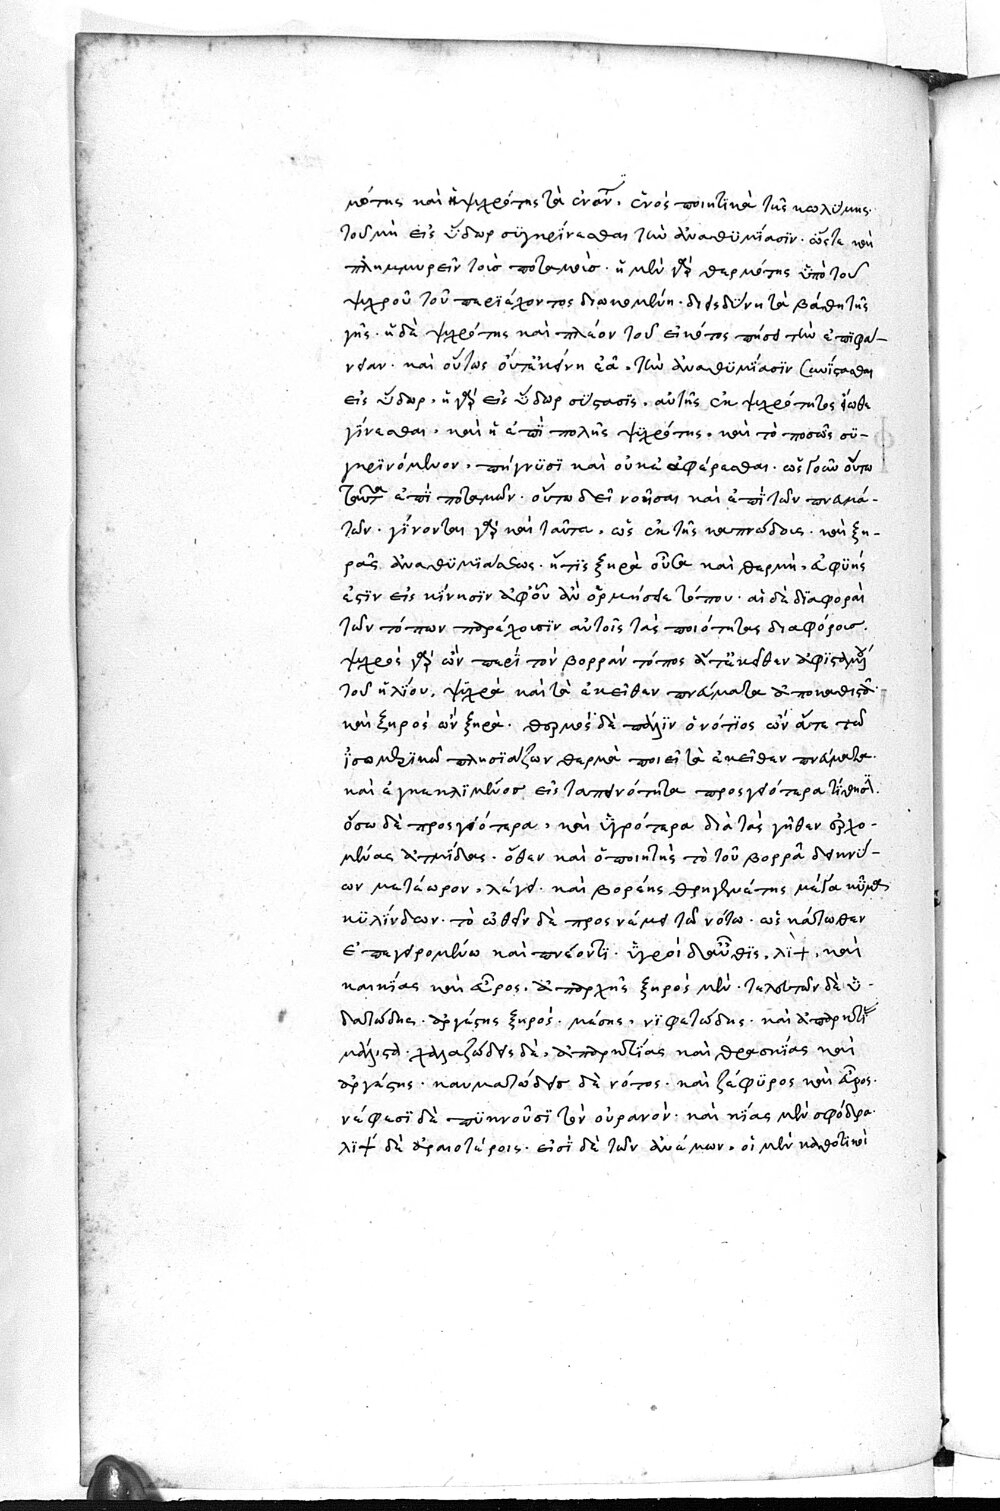 μότης καὶ ἡ ψυχρότης τὰ ἐναν. ἑνὸς ποιητικὰ τῆς κωλύμης
τοῦ μὴ εἰς ὕδωρ συγκρίνεσθαι τὴν ἀναθυμίασιν. ὥστε καὶ
πλημμυρεῖν τοῖς ποταμοῖς. ἡ μὲν γὰρ θερμότης ὑπὸ τοῦ
ψυχροῦ τοῦ περιέχοντος διωκομένη. διεδύνη τὰ βάθη τῆς
γῆς. ἡ δὲ ψυχρότης καὶ πλέον τοῦ εἰκότος τὴν ἐπιφά-
νειαν. καὶ οὕτως ἐᾶ. τὴν ἀναθυμίασιν συνίστασθαι
εἰς ὕδωρ. ἡ γὰρ εἰς ὕδωρ σύστασις. αὐτῆς ἐκ ψυχρότητος εἴωθε
γίνεσθαι. καὶ ἡ ἐπὶ πολῆς ψυχρότης. καὶ τὸ ποσῶς συ-
γκρινόμενον. πήγνυσι καὶ οὐκ φέρεσθαι. ὡς γοῦν οὕτω
ταῦτα ἐπὶ ποταμῶν. οὕτω δεῖ νοῆσαι καὶ ἐπὶ τῶν πνευμά-
των. γίνονται γὰρ καὶ ταῦτα. ὡς ἐκ τῆς καπνώδους. καὶ ξη-
ρᾶς ἀναθυμιάσεως. ἥτις ξηρὰ οὖσα καὶ θερμὴ. εὐφυής
ἐστιν εἰς κίνησιν ἀφ' οὗ ἂν ὁρμήσῃ τόπου. αἱ δὲ διαφοραὶ
τῶν τόπων παρέχουσιν αὐτοῖς τὰς ποιότητας διαφόρους.
ψυχρὸς γὰρ ὢν περὶ τὸν βορρᾶν τόπος
τοῦ ἡλίου. ψυχρὰ καὶ τὰ ἐκεῖθεν πνεύματα
καὶ ξηρὸς ὢν ξηρά. θερμὸς δὲ πάλιν ὁ νότιος ὢν ἅτε τῶ
πλησιάζων θερμὰ ποιεῖ τὰ ἐκεῖθεν πνεύματα.
καὶ ἐγκεκλιμένος εἰς ταπεινότητα προσγειότερα
ὅσω δὲ προσγειότερα. καὶ ὑγρότερα διὰ τὰς γῆθεν ἐρχο-
μένας ἀτμίδας. ὅθεν καὶ ὁ ποιητὴς τὸ τοῦ βορρᾶ δεικνύ-
ων μετέωρον. λέγει. καὶ βορέης αἰθρηγενέτης μέγα κῦμα
κυλίνδων. τὸ ὠθεῖν δὲ προσνέμει τῶ νότω. ὡς κάτωθεν
ἐπεγειρομένω καὶ πνέοντι. ὑγροὶ δ' αὖθις. λὶψ. καὶ
καικίας καὶ εὖρος. ἀπαρχῆς ξηρὸς μὲν. τελευτῶν δὲ ὑ-
δατώδης. ἀργέστης ξηρός. μέσης. νιφετώδης. καὶ ἀπαρκτί
μάλιστα. χαλαζώδεις δὲ. ἀπαρκτίας καὶ θρασκίας καὶ
ἀργέστης. καυματώδεις δὲ νότος. καὶ ζέφυρος καὶ εὖρος.
νέφεσι δὲ πυκνοῦσι τὸν οὐρανόν. καικίας μὲν σφόδρα.
λὶψ δὲ ἀραιοτέροις. εἰσὶ δὲ τῶν ἀνέμων. οἱ μὲν καθολικοὶ